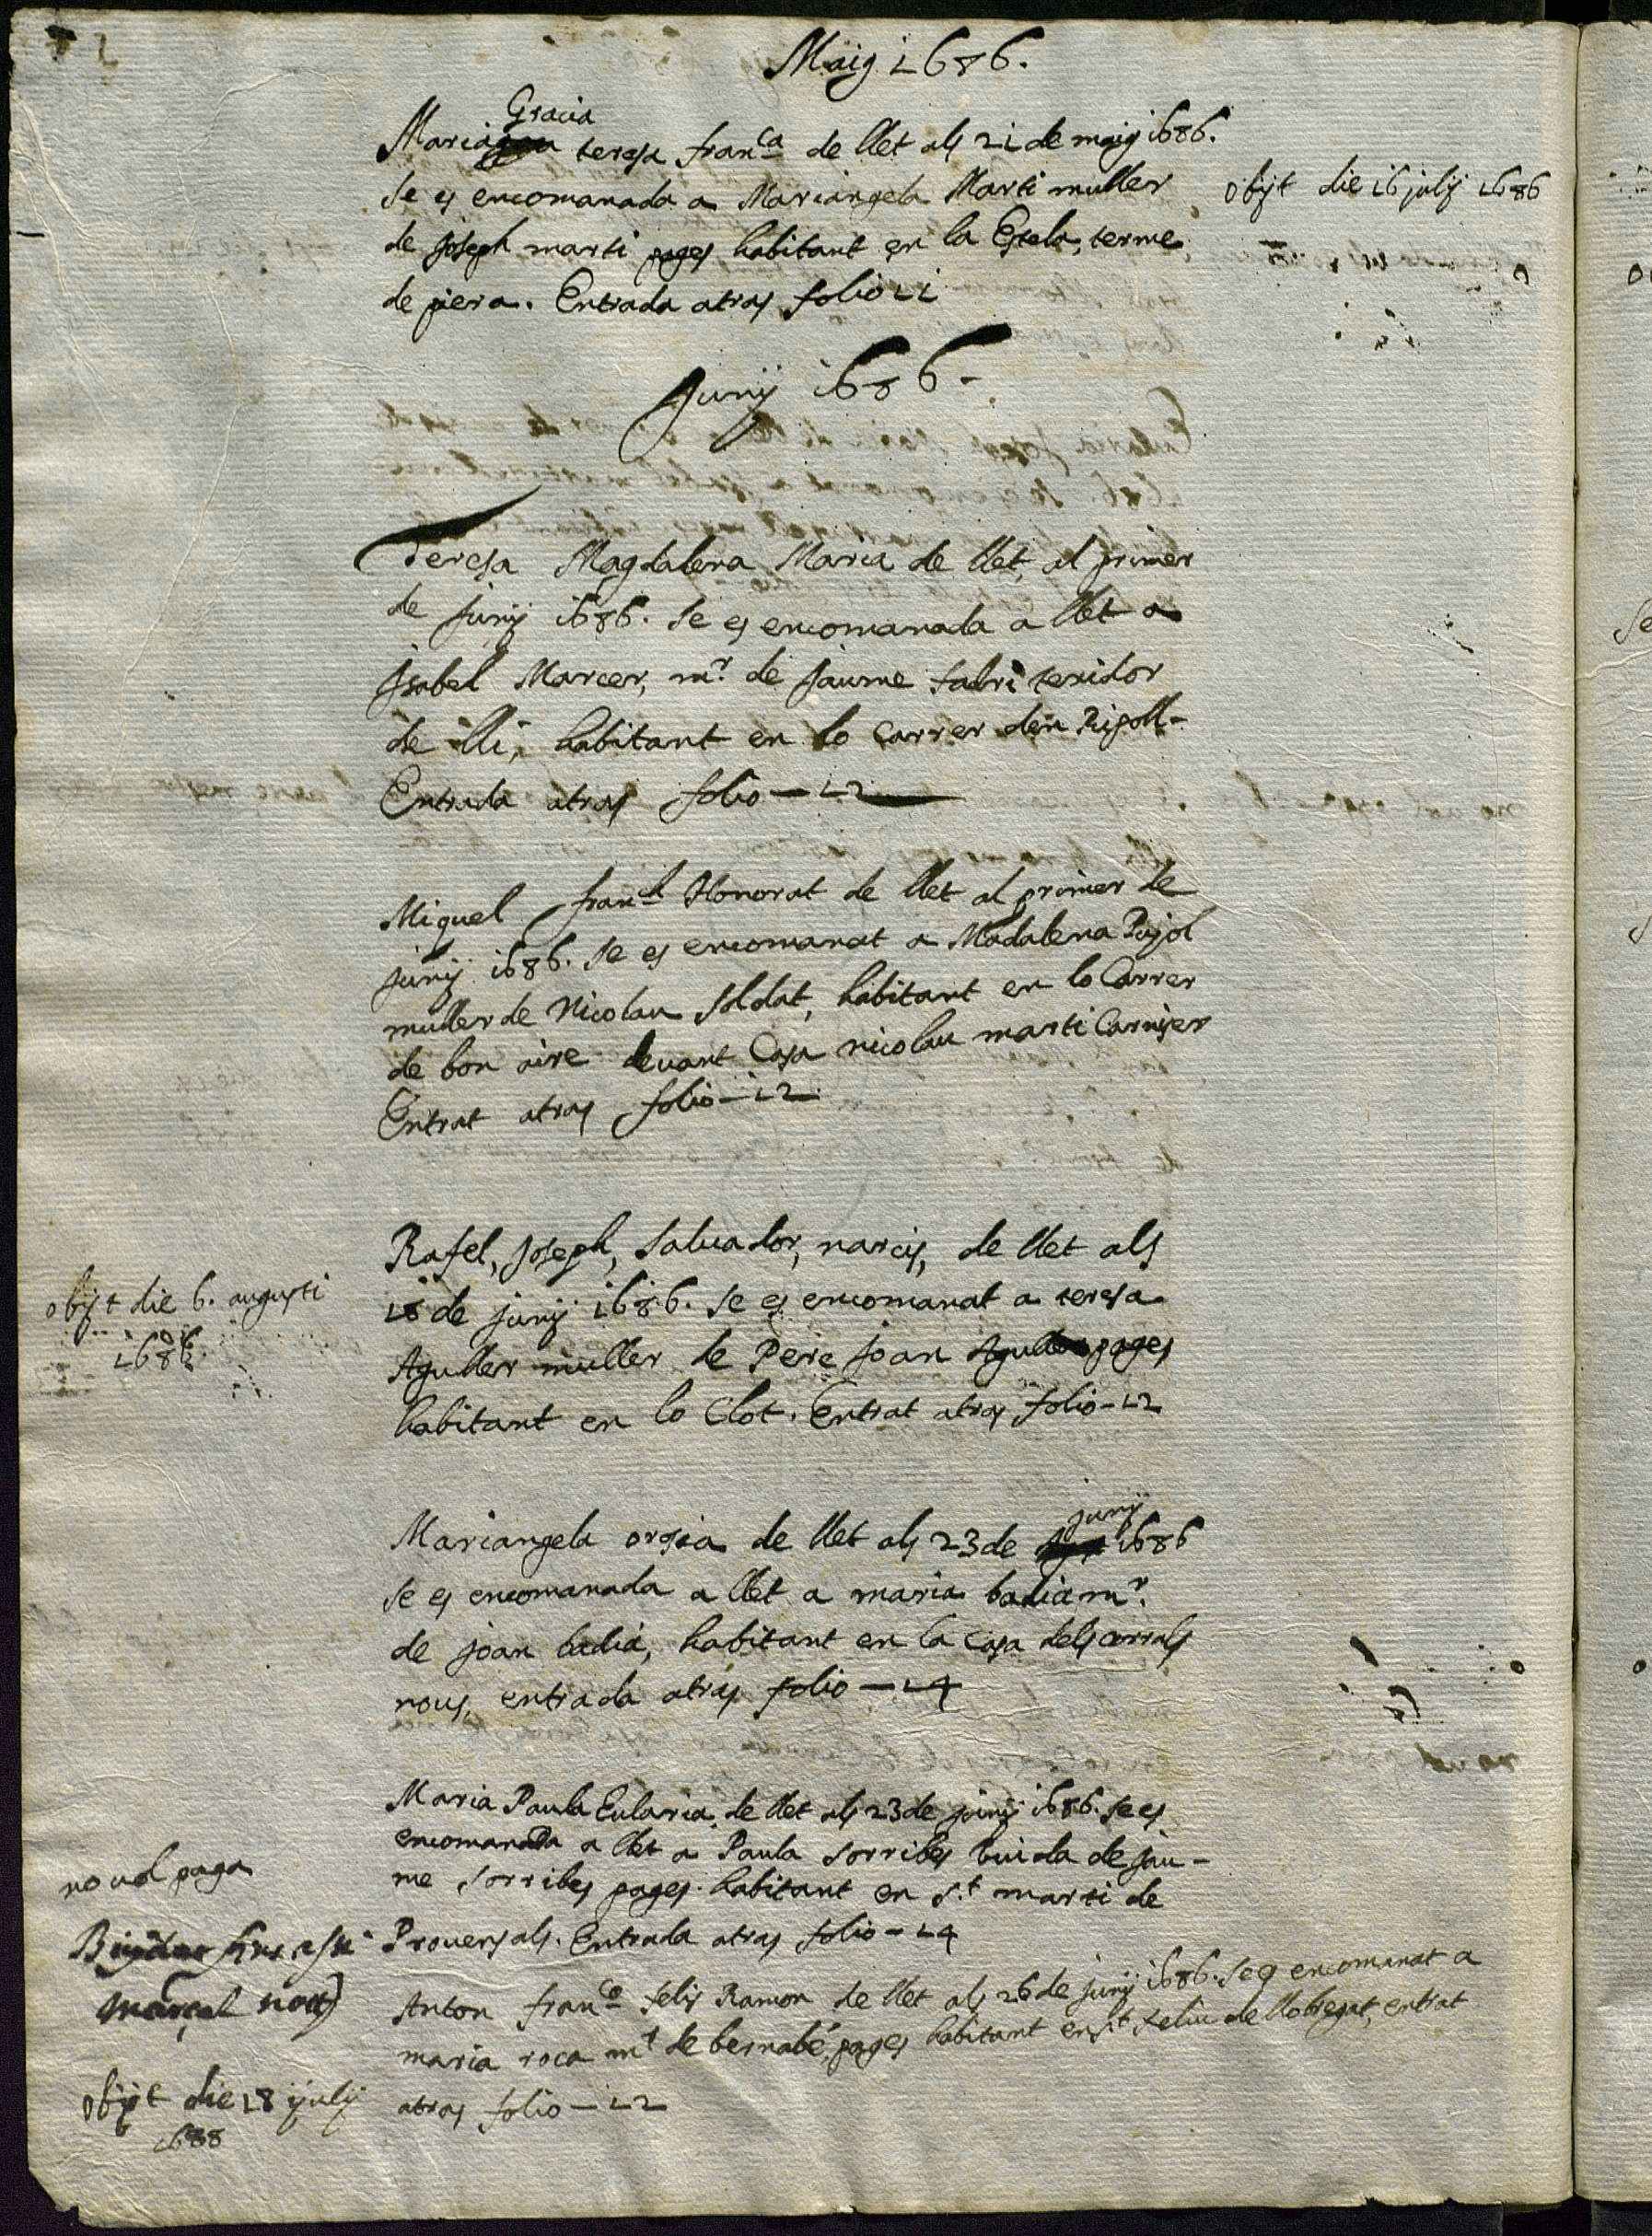 Maig 1686.
Maria Gracia teresa fran.ca de llet als 21 de maig 1686.
se es encomanada a Mariangela Marti muller
de Joseph marti pages habitant en la Estela, terme
de piera. Entrada atras folio 11
obijt die 16 julij 1686
Junij 1686.
Teresa Magdalena Maria de llet, al primer
de Junij 1686. se es encomanada a llet a
Isabel Marcer, m.r de Jaume fabri texidor
de lli, habitant en lo Carrer den Ripoll-
Entrada atras folio-12
Miquel fran.ch Honorat de llet al primer de
Junij 1686. se es encomanat a Madalena Pujol
muller de Nicolau soldat, habitant en lo Carrer
de bon aire devant Casa nicolau marti Carniser
Entrat atras folio-12
Rafel, Joseph, Saluador, narcis, de llet als
18 de junij 1686. se es encomanat a teresa
Aguller muller de Pere Joan Aguller pages
habitant en lo Clot. Entrat atras folio-12
obijt die 6. augusti
1686.
Mariangela orsia de llet als 23 de junij 1686
se es encomanada a llet a maria badia m.r
de joan badia, habitant en la casa dels corrals
nous, entrada atras folio-14
Maria Paula Eularia de llet als 23 de junij 1686. se es
encomanada a llet a Paula Sorribes viuda de Jau-
me Sorribes pages. habitant en S.t marti de
Prouensals. Entrada atras folio-14
no vol paga
marçal
Anton fran.co felix Ramon de llet als 26 de junij 1686. se es encomanat a
maria roca m.r de bernabé, pages habitant en S.t feliu de llobregat, entrat
atras folio-12
obijt die 18 julij
1688